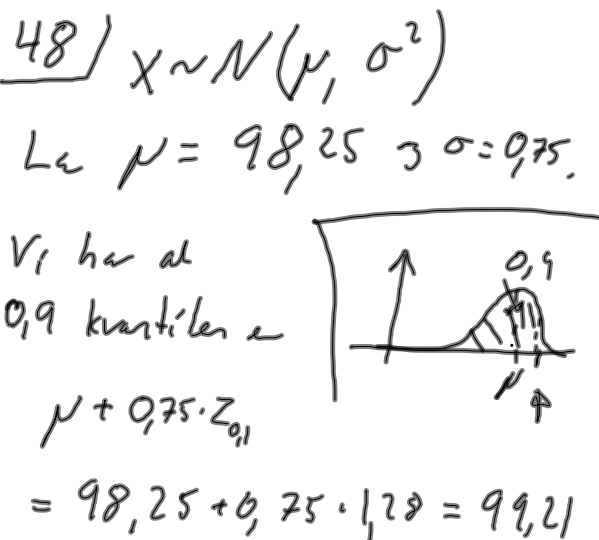 48) X ~ N(μ, σ²)
La μ = 98,25 og σ = 0,75.
Vi har at
0,9 kvantilen er
μ + 0,75 · Z₀,₁
= 98,25 + 0,75 · 1,28 = 99,21
0,9
μ